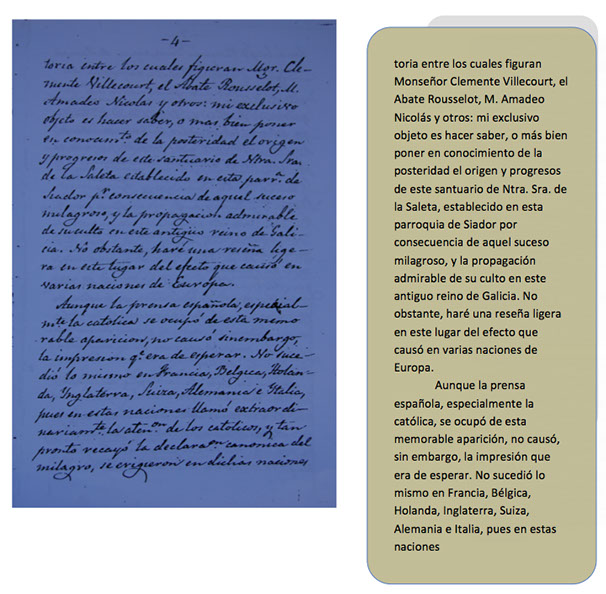 -4-
toria entre los cuales figuran Mor. Cle-
mente Villecourt, el Abate Rousselot, M.
Amadeo Nicolás y otros: mi exclusivo
objeto es hacer saber, o mas bien poner
en conocimto. de la posteridad el origen
y progresos de este santuario de Ntra. Sra.
de la Saleta establecido en esta parrqa. de
Siador pr. consecuencia de aquel suceso
milagroso, y la propagacion admirable
de su culto en este antiguo reino de Gali-
cia. No obstante, haré una reseña lige-
ra en este lugar del efecto que causó en
varias naciones de Europa.
Aunque la prensa española, especial-
mte. la catolica se ocupó de esta memo
rable aparicion, no causó sinembargo,
la impresion qe. era de esperar. No suce-
dió lo mismo en Francia, Belgica, Holan-
da, Ynglaterra, Suiza, Alemania e Italia,
pues en estas naciones llamó extraordi
nariamte. la atenon. de los catolicos, y tan
pronto recayó la declaraon. canonica del
milagro, se erigieron en dichas naciones
toria entre los cuales figuran
Monseñor Clemente Villecourt, el
Abate Rousselot, M. Amadeo
Nicolás y otros: mi exclusivo
objeto es hacer saber, o más bien
poner en conocimiento de la
posteridad el origen y progresos
de este santuario de Ntra. Sra. de
la Saleta, establecido en esta
parroquia de Siador por
consecuencia de aquel suceso
milagroso, y la propagación
admirable de su culto en este
antiguo reino de Galicia. No
obstante, haré una reseña ligera
en este lugar del efecto que
causó en varias naciones de
Europa.
Aunque la prensa
española, especialmente la
católica, se ocupó de esta
memorable aparición, no causó,
sin embargo, la impresión que
era de esperar. No sucedió lo
mismo en Francia, Bélgica,
Holanda, Inglaterra, Suiza,
Alemania e Italia, pues en estas
naciones